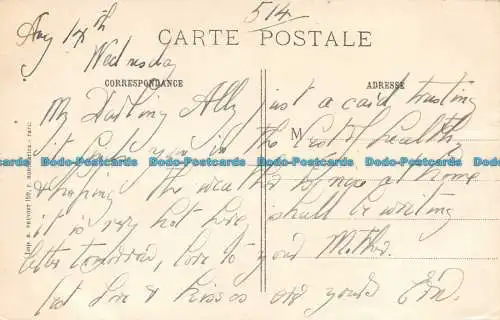 514
Aug 14th
Wednesday
CARTE POSTALE
CORRESPONDANCE
ADRESSE
My Darling Ally just a card trusting
it finds you in the best of health
M
& hoping the weather is nice at home
it is very hot here, shall be writing
letter tomorrow, love to your Mother.
best love & kisses
Dodo-Postcards Dodo-Postcards Dodo-Postcards Dodo-Postcards Dodo-Postcards Dodo-Postcards